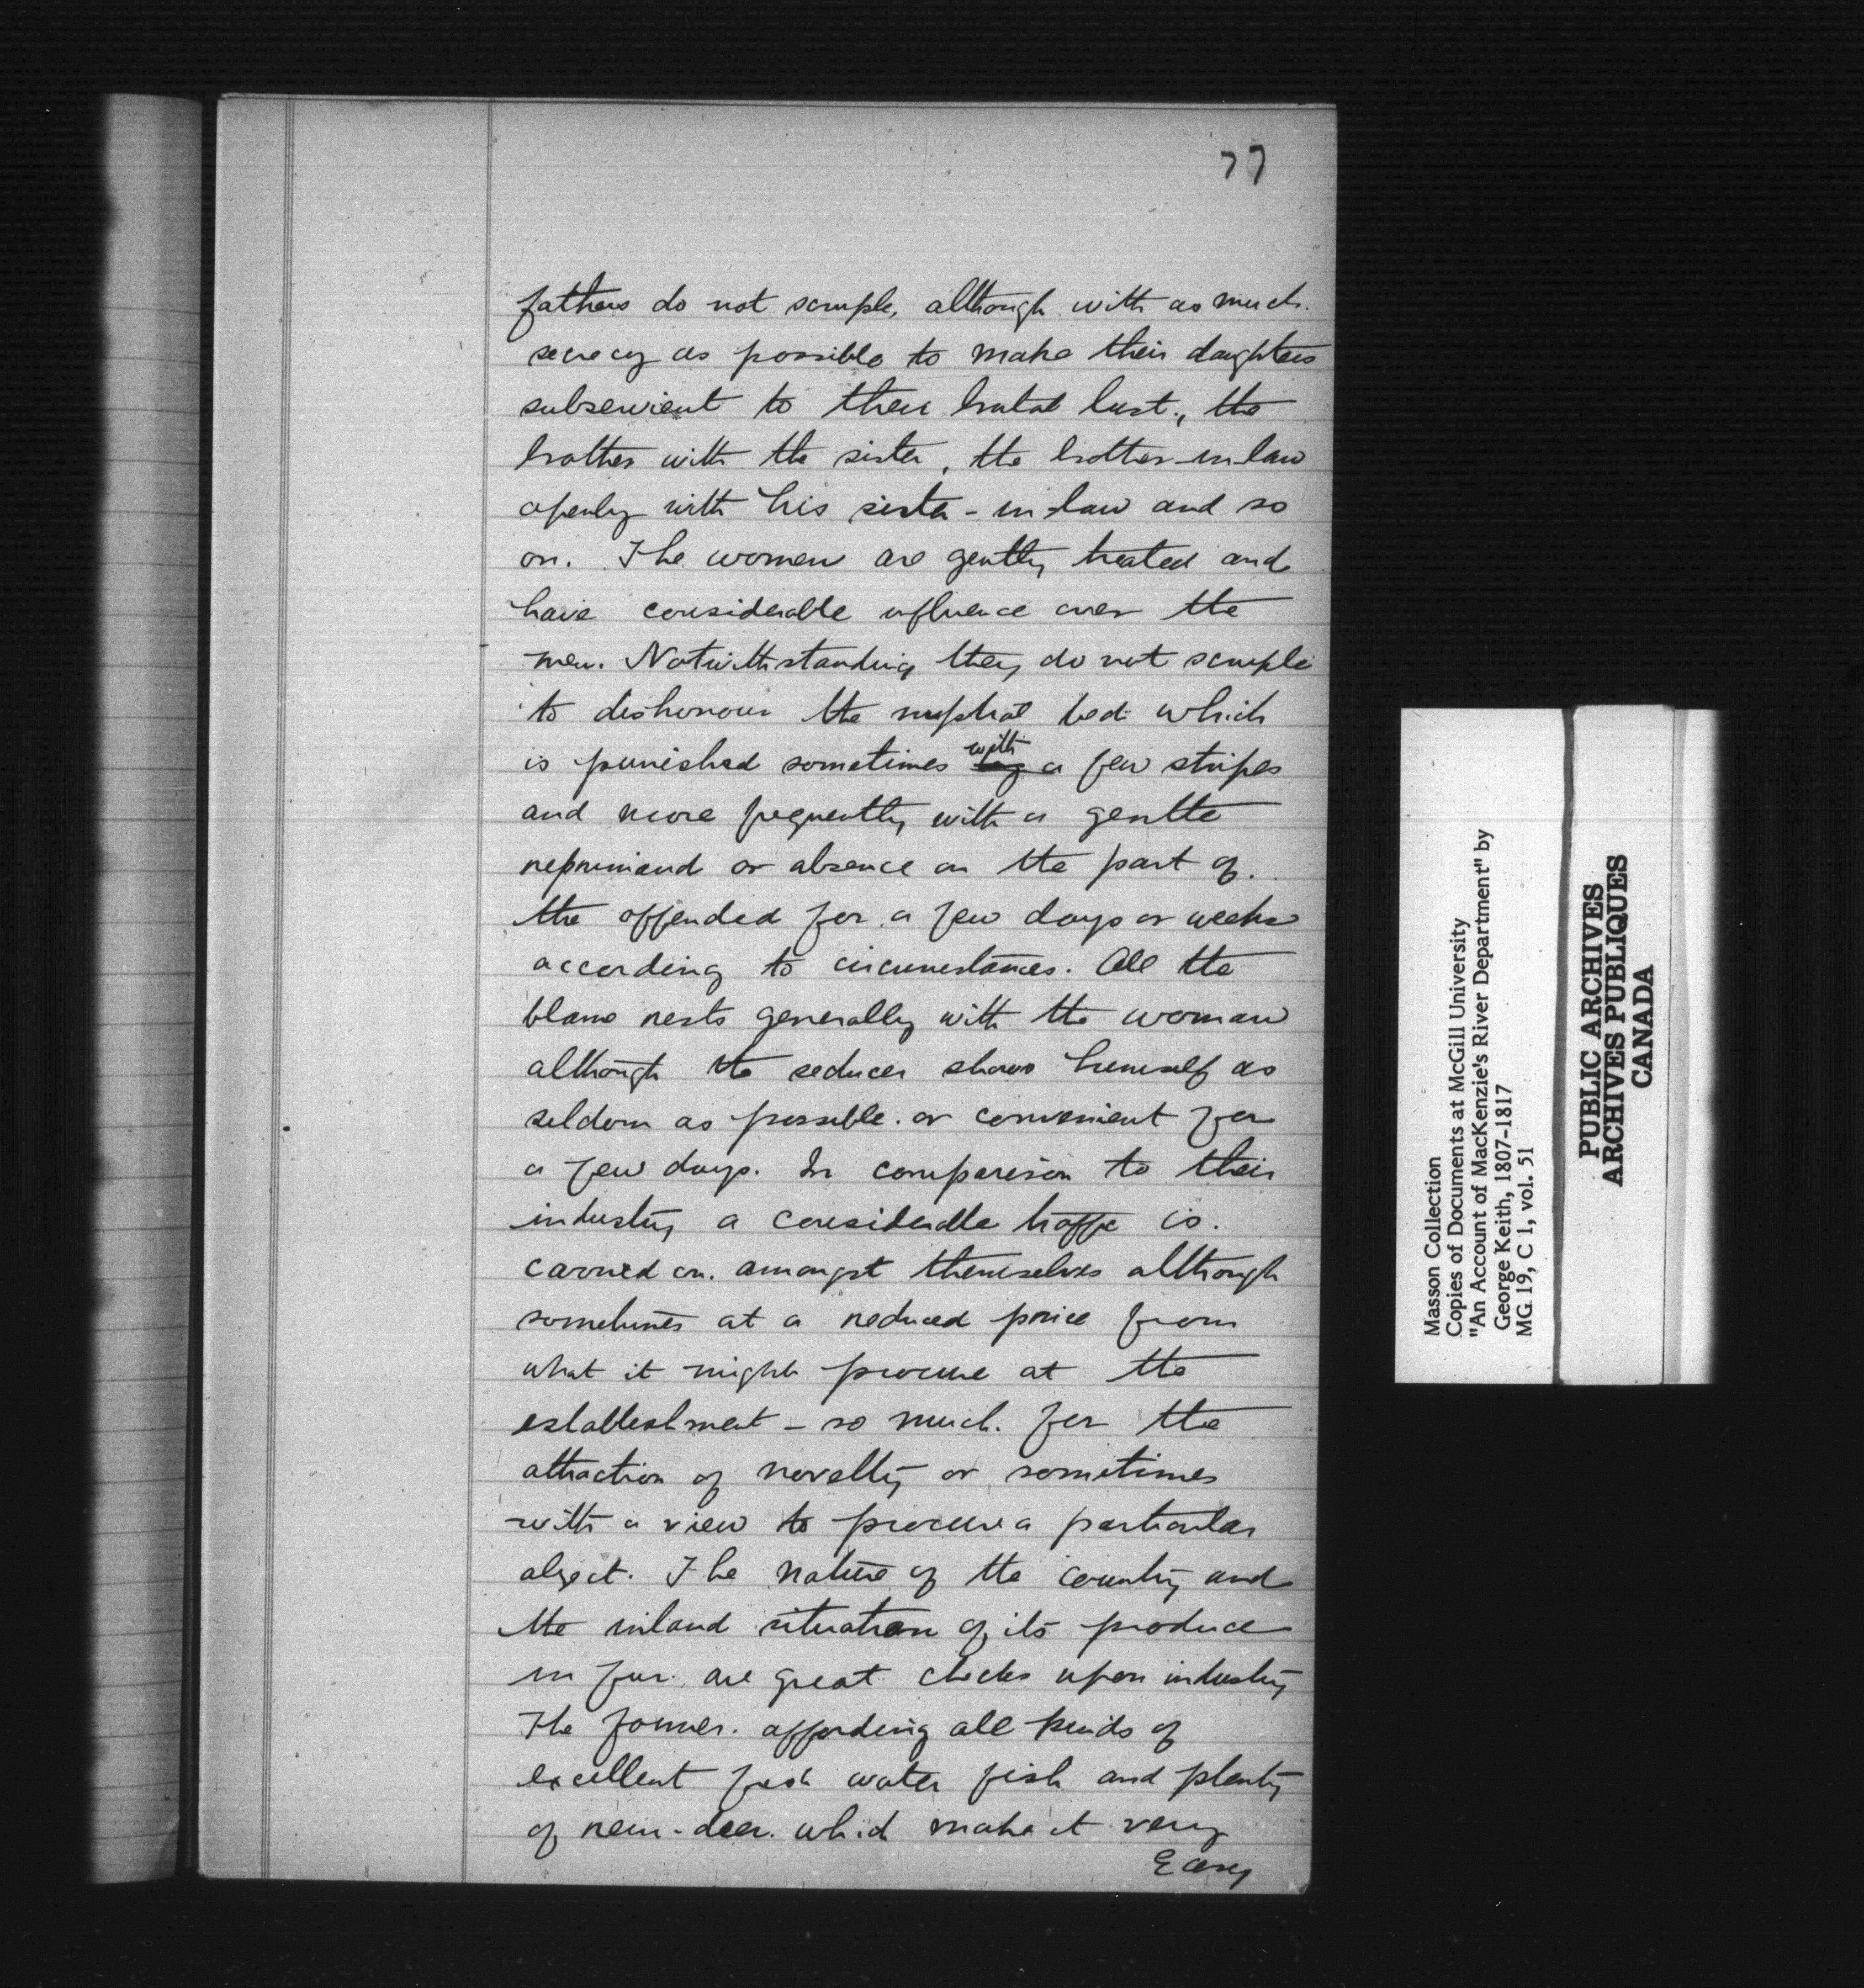 77
fathers do not scruple, although with as much
secrecy as possible to make their daughters
subservient to their brutal lust, the
brother with the sister, the brother-in-law
openly with his sister-in-law and so
on. The women are gently treated and
have considerable influence over the
men. Notwithstanding they do not scruple
to dishonour the nuptial bed which
is punished sometimes with by a few stripes
and more frequently with a gentle
reprimand or absence on the part of
the offended for a few days or weeks
according to circumstances. All the
blame rests generally with the woman
although the seducer shows himself as
seldom as possible or convenient for
a few days. In comparison to their
industry a considerable traffic is
carried on amongst themselves although
sometimes at a reduced price from
what it might procure at the
establishment - so much for the
attraction of novelty or sometimes
with a view to procure a particular
object. The nature of the country and
the inland situation of its produce
in fur are great checks upon industry
The former affording all kinds of
excellent fresh water fish and plenty
of rein-deer which make it very
Easy
Masson Collection
Copies of Documents at McGill University
"An Account of MacKenzie's River Department" by
George Keith, 1807-1817
MG 19, C 1, vol. 51
PUBLIC ARCHIVES
ARCHIVES PUBLIQUES
CANADA